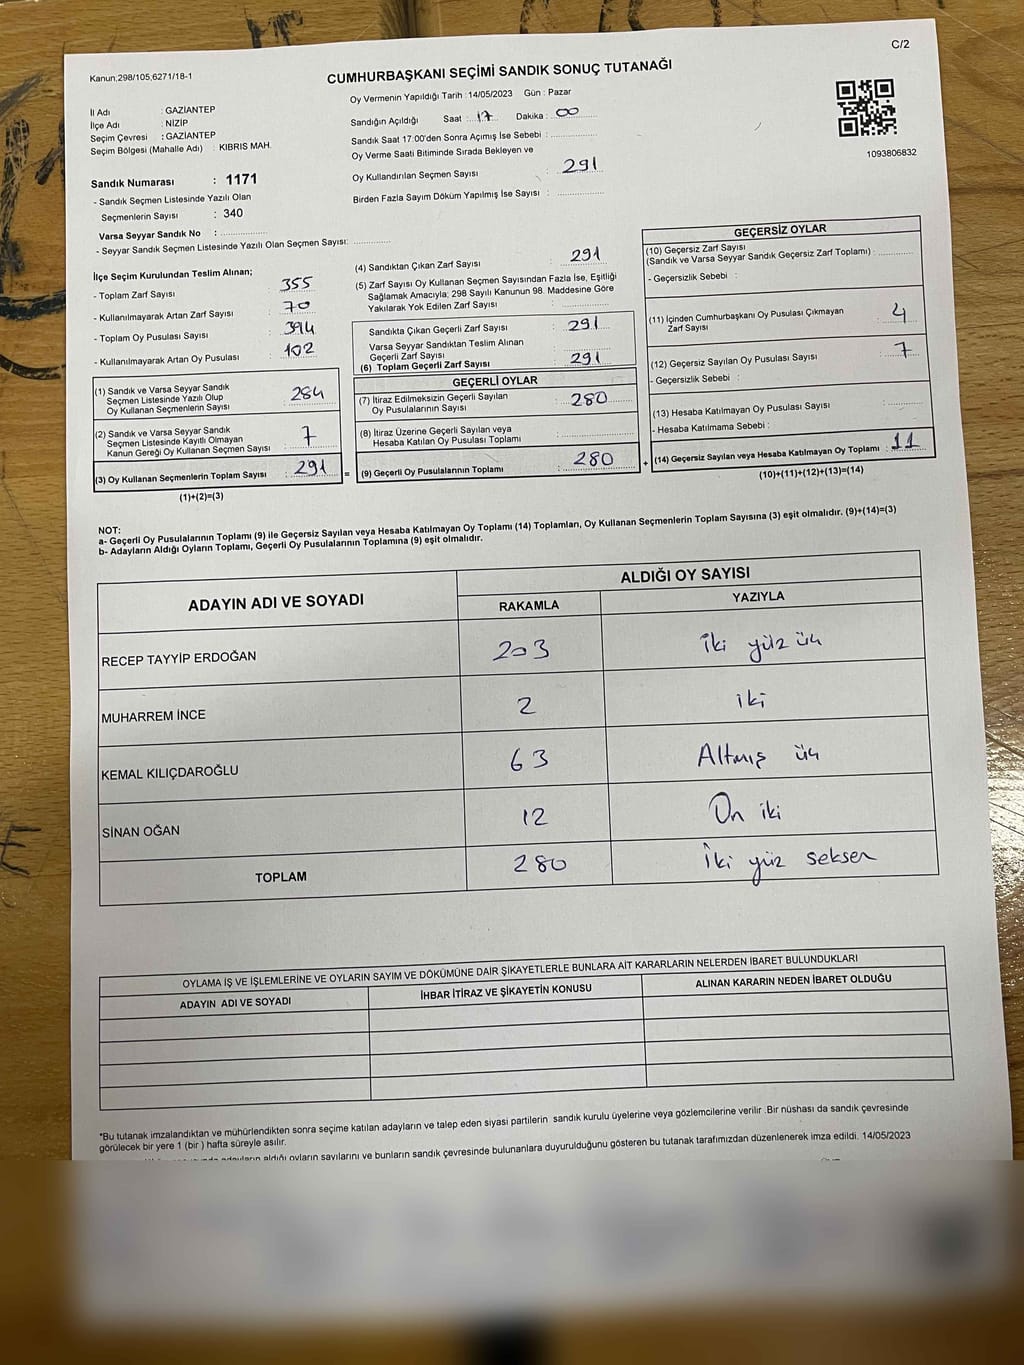 C/2
Kanun,298/105,6271/18-1
CUMHURBAŞKANI SEÇİMİ SANDIK SONUÇ TUTANAĞI
İl Adı : GAZİANTEP
İlçe Adı : NİZİP
Seçim Çevresi : GAZİANTEP
Seçim Bölgesi (Mahalle Adı) : KIBRIS MAH.
Oy Vermenin Yapıldığı Tarih : 14/05/2023 Gün : Pazar
Sandığın Açıldığı Saat : 17 Dakika : 00
Sandık Saat 17:00'den Sonra Açımış İse Sebebi :
Oy Verme Saati Bitiminde Sırada Bekleyen ve
Oy Kullandırılan Seçmen Sayısı : 291
Birden Fazla Sayım Döküm Yapılmış İse Sayısı :
1093806832
Sandık Numarası : 1171
- Sandık Seçmen Listesinde Yazılı Olan
Seçmenlerin Sayısı : 340
Varsa Seyyar Sandık No :
- Seyyar Sandık Seçmen Listesinde Yazılı Olan Seçmen Sayısı:
İlçe Seçim Kurulundan Teslim Alınan;
- Toplam Zarf Sayısı : 355
- Kullanılmayarak Artan Zarf Sayısı : 70
- Toplam Oy Pusulası Sayısı : 394
- Kullanılmayarak Artan Oy Pusulası : 102
(1) Sandık ve Varsa Seyyar Sandık
Seçmen Listesinde Yazılı Olup
Oy Kullanan Seçmenlerin Sayısı : 284
(2) Sandık ve Varsa Seyyar Sandık
Seçmen Listesinde Kayıtlı Olmayan
Kanun Gereği Oy Kullanan Seçmen Sayısı : 7
(3) Oy Kullanan Seçmenlerin Toplam Sayısı : 291
(1)+(2)=(3)
(4) Sandıktan Çıkan Zarf Sayısı : 291
(5) Zarf Sayısı Oy Kullanan Seçmen Sayısından Fazla İse, Eşitliği
Sağlamak Amacıyla; 298 Sayılı Kanunun 98. Maddesine Göre
Yakılarak Yok Edilen Zarf Sayısı :
Sandıkta Çıkan Geçerli Zarf Sayısı : 291
Varsa Seyyar Sandıktan Teslim Alınan
Geçerli Zarf Sayısı :
(6) Toplam Geçerli Zarf Sayısı : 291
GEÇERLİ OYLAR
(7) İtiraz Edilmeksizin Geçerli Sayılan
Oy Pusulalarının Sayısı : 280
(8) İtiraz Üzerine Geçerli Sayılan veya
Hesaba Katılan Oy Pusulası Toplamı :
= (9) Geçerli Oy Pusulalarının Toplamı : 280
GEÇERSİZ OYLAR
(10) Geçersiz Zarf Sayısı
(Sandık ve Varsa Seyyar Sandık Geçersiz Zarf Toplamı) :
- Geçersizlik Sebebi :
(11) İçinden Cumhurbaşkanı Oy Pusulası Çıkmayan
Zarf Sayısı : 4
(12) Geçersiz Sayılan Oy Pusulası Sayısı : 7
- Geçersizlik Sebebi :
(13) Hesaba Katılmayan Oy Pusulası Sayısı :
- Hesaba Katılmama Sebebi :
+ (14) Geçersiz Sayılan veya Hesaba Katılmayan Oy Toplamı : 11
(10)+(11)+(12)+(13)=(14)
NOT:
a- Geçerli Oy Pusulalarının Toplamı (9) ile Geçersiz Sayılan veya Hesaba Katılmayan Oy Toplamı (14) Toplamları, Oy Kullanan Seçmenlerin Toplam Sayısına (3) eşit olmalıdır. (9)+(14)=(3)
b- Adayların Aldığı Oyların Toplamı, Geçerli Oy Pusulalarının Toplamına (9) eşit olmalıdır.
ADAYIN ADI VE SOYADI
ALDIĞI OY SAYISI
RAKAMLA YAZIYLA
RECEP TAYYİP ERDOĞAN 203 İki yüz üç
MUHARREM İNCE 2 iki
KEMAL KILIÇDAROĞLU 63 Altmış üç
SİNAN OĞAN 12 On iki
TOPLAM 280 İki yüz seksen
OYLAMA İŞ VE İŞLEMLERİNE VE OYLARIN SAYIM VE DÖKÜMÜNE DAİR ŞİKAYETLERLE BUNLARA AİT KARARLARIN NELERDEN İBARET BULUNDUKLARI
ADAYIN ADI VE SOYADI İHBAR İTİRAZ VE ŞİKAYETİN KONUSU ALINAN KARARIN NEDEN İBARET OLDUĞU
*Bu tutanak imzalandıktan ve mühürlendikten sonra seçime katılan adayların ve talep eden siyasi partilerin sandık kurulu üyelerine veya gözlemcilerine verilir .Bir nüshası da sandık çevresinde
görülecek bir yere 1 (bir ) hafta süreyle asılır.
adayların aldığı oyların sayılarını ve bunların sandık çevresinde bulunanlara duyurulduğunu gösteren bu tutanak tarafımızdan düzenlenerek imza edildi. 14/05/2023